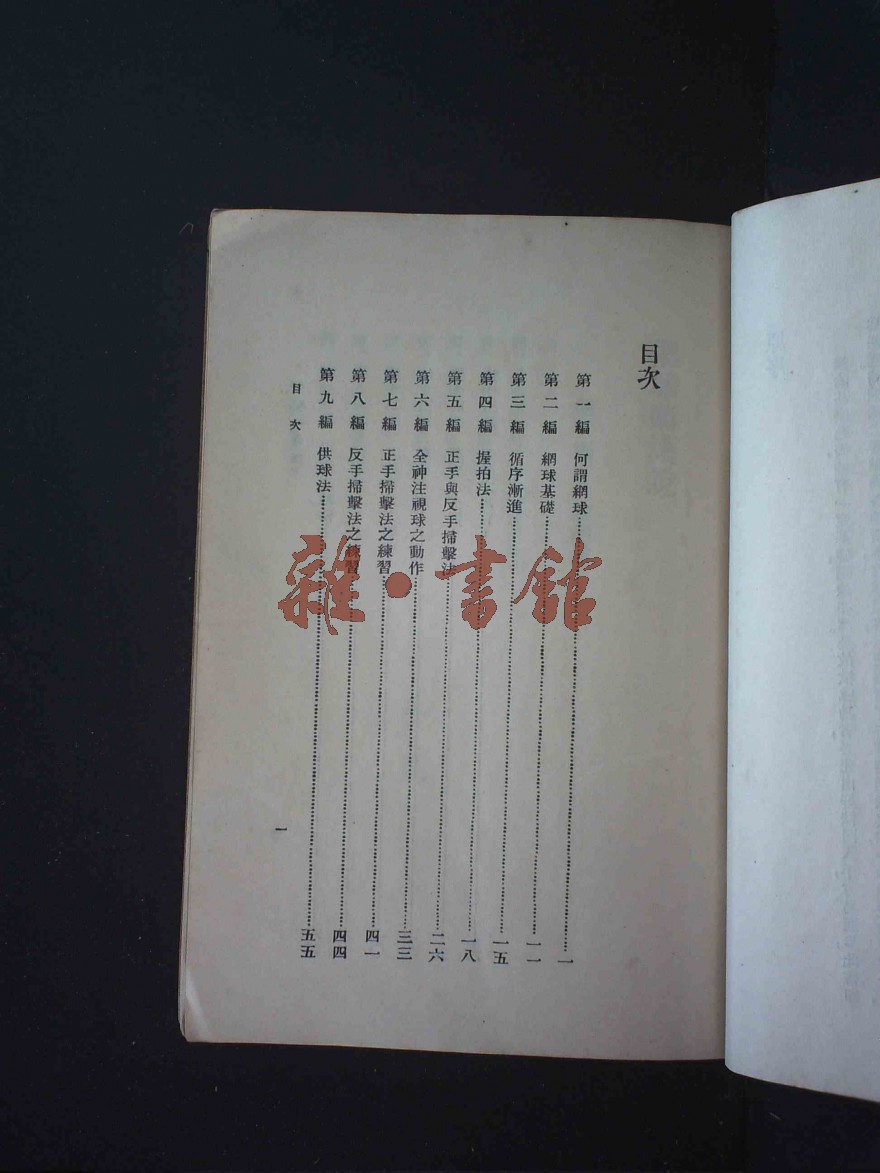 目次
第一編 何謂網球……一
第二編 網球基礎……一一
第三編 循序漸進……一五
第四編 握拍法……一八
第五編 正手與反手掃擊法……二六
第六編 全神注視球之動作……三三
第七編 正手掃擊法之練習……四一
第八編 反手掃擊法之練習……四四
第九編 供球法……五五
目次
一
雜·書館